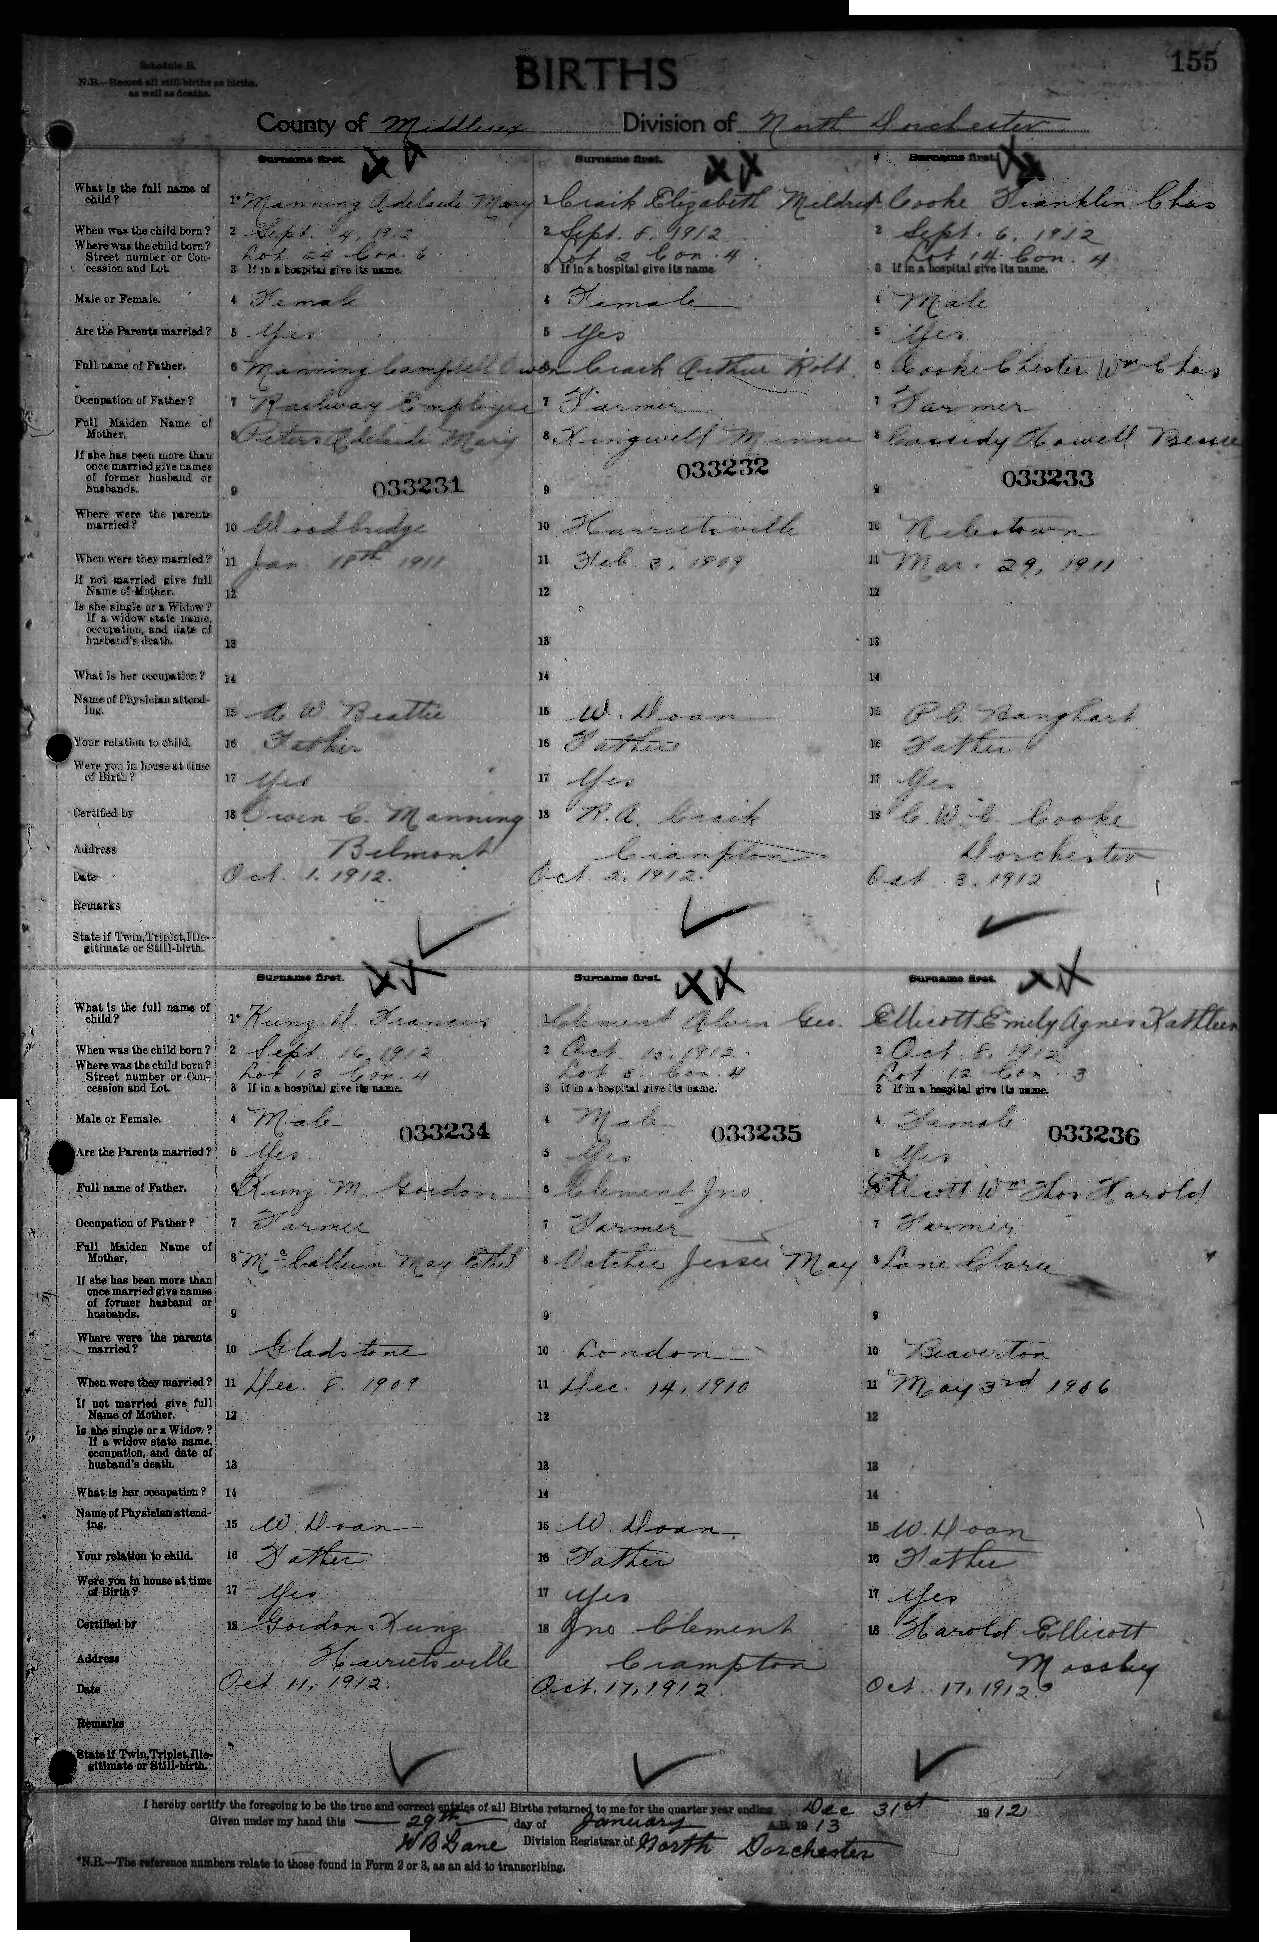 Schedule B.
155
N.B.—Record all still-births as births,
as well as deaths.
BIRTHS
County of Middlesex Division of North Dorchester
Surname first. Surname first. Surname first.
What is the full name of child? 1* Manning Adelaide Mary 1 Craik Elizabeth Mildred Cooke Franklin Chas
When was the child born? 2 Sept. 4, 1912 2 Sept. 8, 1912 2 Sept. 6, 1912
Where was the child born? Street number or Concession and Lot. Lot 24 Con. 6 Lot 2 Con. 4 Lot 14 Con. 4
3 If in a hospital give its name. 3 If in a hospital give its name. 3 If in a hospital give its name.
Male or Female. 4 Female 4 Female 4 Male
Are the Parents married? 5 Yes 5 Yes 5 Yes
Full name of Father. 6 Manning Campbell Owen 6 Craik Arthur Robt. 6 Cooke Chester Wm Chas
Occupation of Father? 7 Railway Employee 7 Farmer 7 Farmer
Full Maiden Name of Mother. 8 Peters Adelaide Mary 8 Kingwell Minnie 8 Cassidy Howell Bessie
If she has been more than once married give names of former husband or husbands. 9 9 9
033231 033232 033233
Where were the parents married? 10 Woodbridge 10 Harrietsville 10 Nilestown
When were they married? 11 Jan 18th 1911 11 Feb 3, 1909 11 Mar. 29, 1911
If not married give full Name of Mother. 12 12 12
Is she single or a Widow? If a widow state name, occupation, and date of husband's death. 13 13 13
What is her occupation? 14 14 14
Name of Physician attending. 15 A W. Beattie 15 W. Doan 15 P. C. Banghart
Your relation to child. 16 Father 16 Father 16 Father
Were you in house at time of Birth? 17 Yes 17 Yes 17 Yes
Certified by 18 Owen C. Manning 18 R. A. Craik 18 C. W. C. Cooke
Address Belmont Crampton Dorchester
Date Oct. 1, 1912. Oct 2, 1912. Oct 3, 1912
Remarks
State if Twin, Triplet, Illegitimate or Still-birth.
Surname first. Surname first. Surname first.
What is the full name of child? 1* Kunz Francis Clement Alvin Geo. Ellicott Emily Agnes Kathleen
When was the child born? 2 Sept 16, 1912 2 Oct. 1912 2 Oct. 8, 1912
Where was the child born? Street number or Concession and Lot. Lot 13 Con. 4 Lot 5 Con. 4 Lot 12 Con. 3
3 If in a hospital give its name. 3 If in a hospital give its name. 3 If in a hospital give its name.
Male or Female. 4 Male 4 Male 4 Female
033234 033235 033236
Are the Parents married? 5 Yes 5 Yes 5 Yes
Full name of Father. 6 Kunz M. Gordon 6 Clement Jno. Ellicott Wm Thos Harold
Occupation of Father? 7 Farmer 7 Farmer 7 Farmer
Full Maiden Name of Mother, 8 McCallum May Ethel 8 Vatcher Jessie May 8 Lane Clara
If she has been more than once married give names of former husband or husbands. 9 9 9
Where were the parents married? 10 Gladstone 10 London 10 Beaverton
When were they married? 11 Dec. 8, 1909 11 Dec. 14, 1910 11 May 3rd 1906
If not married give full Name of Mother. 12 12 12
Is she single or a Widow? If a widow state name, occupation, and date of husband's death. 13 13 13
What is her occupation? 14 14 14
Name of Physician attending. 15 W. Doan 15 W. Doan 15 W. Doan
Your relation to child. 16 Father 16 Father 16 Father
Were you in house at time of Birth? 17 Yes 17 Yes 17 Yes
Certified by 18 Gordon Kunz 18 Jno Clement 18 Harold Ellicott
Address Harrietsville Crampton Mossley
Date Oct. 11, 1912. Oct. 17, 1912 Oct. 17, 1912
Remarks
State if Twin, Triplet, Illegitimate or Still-birth.
I hereby certify the foregoing to be the true and correct entries of all Births returned to me for the quarter year ending Dec 31st 1912
Given under my hand this 29th day of January A.D. 1913
W B Lane Division Registrar of North Dorchester
*N.B.—The reference numbers relate to those found in Form 2 or 3, as an aid to transcribing.